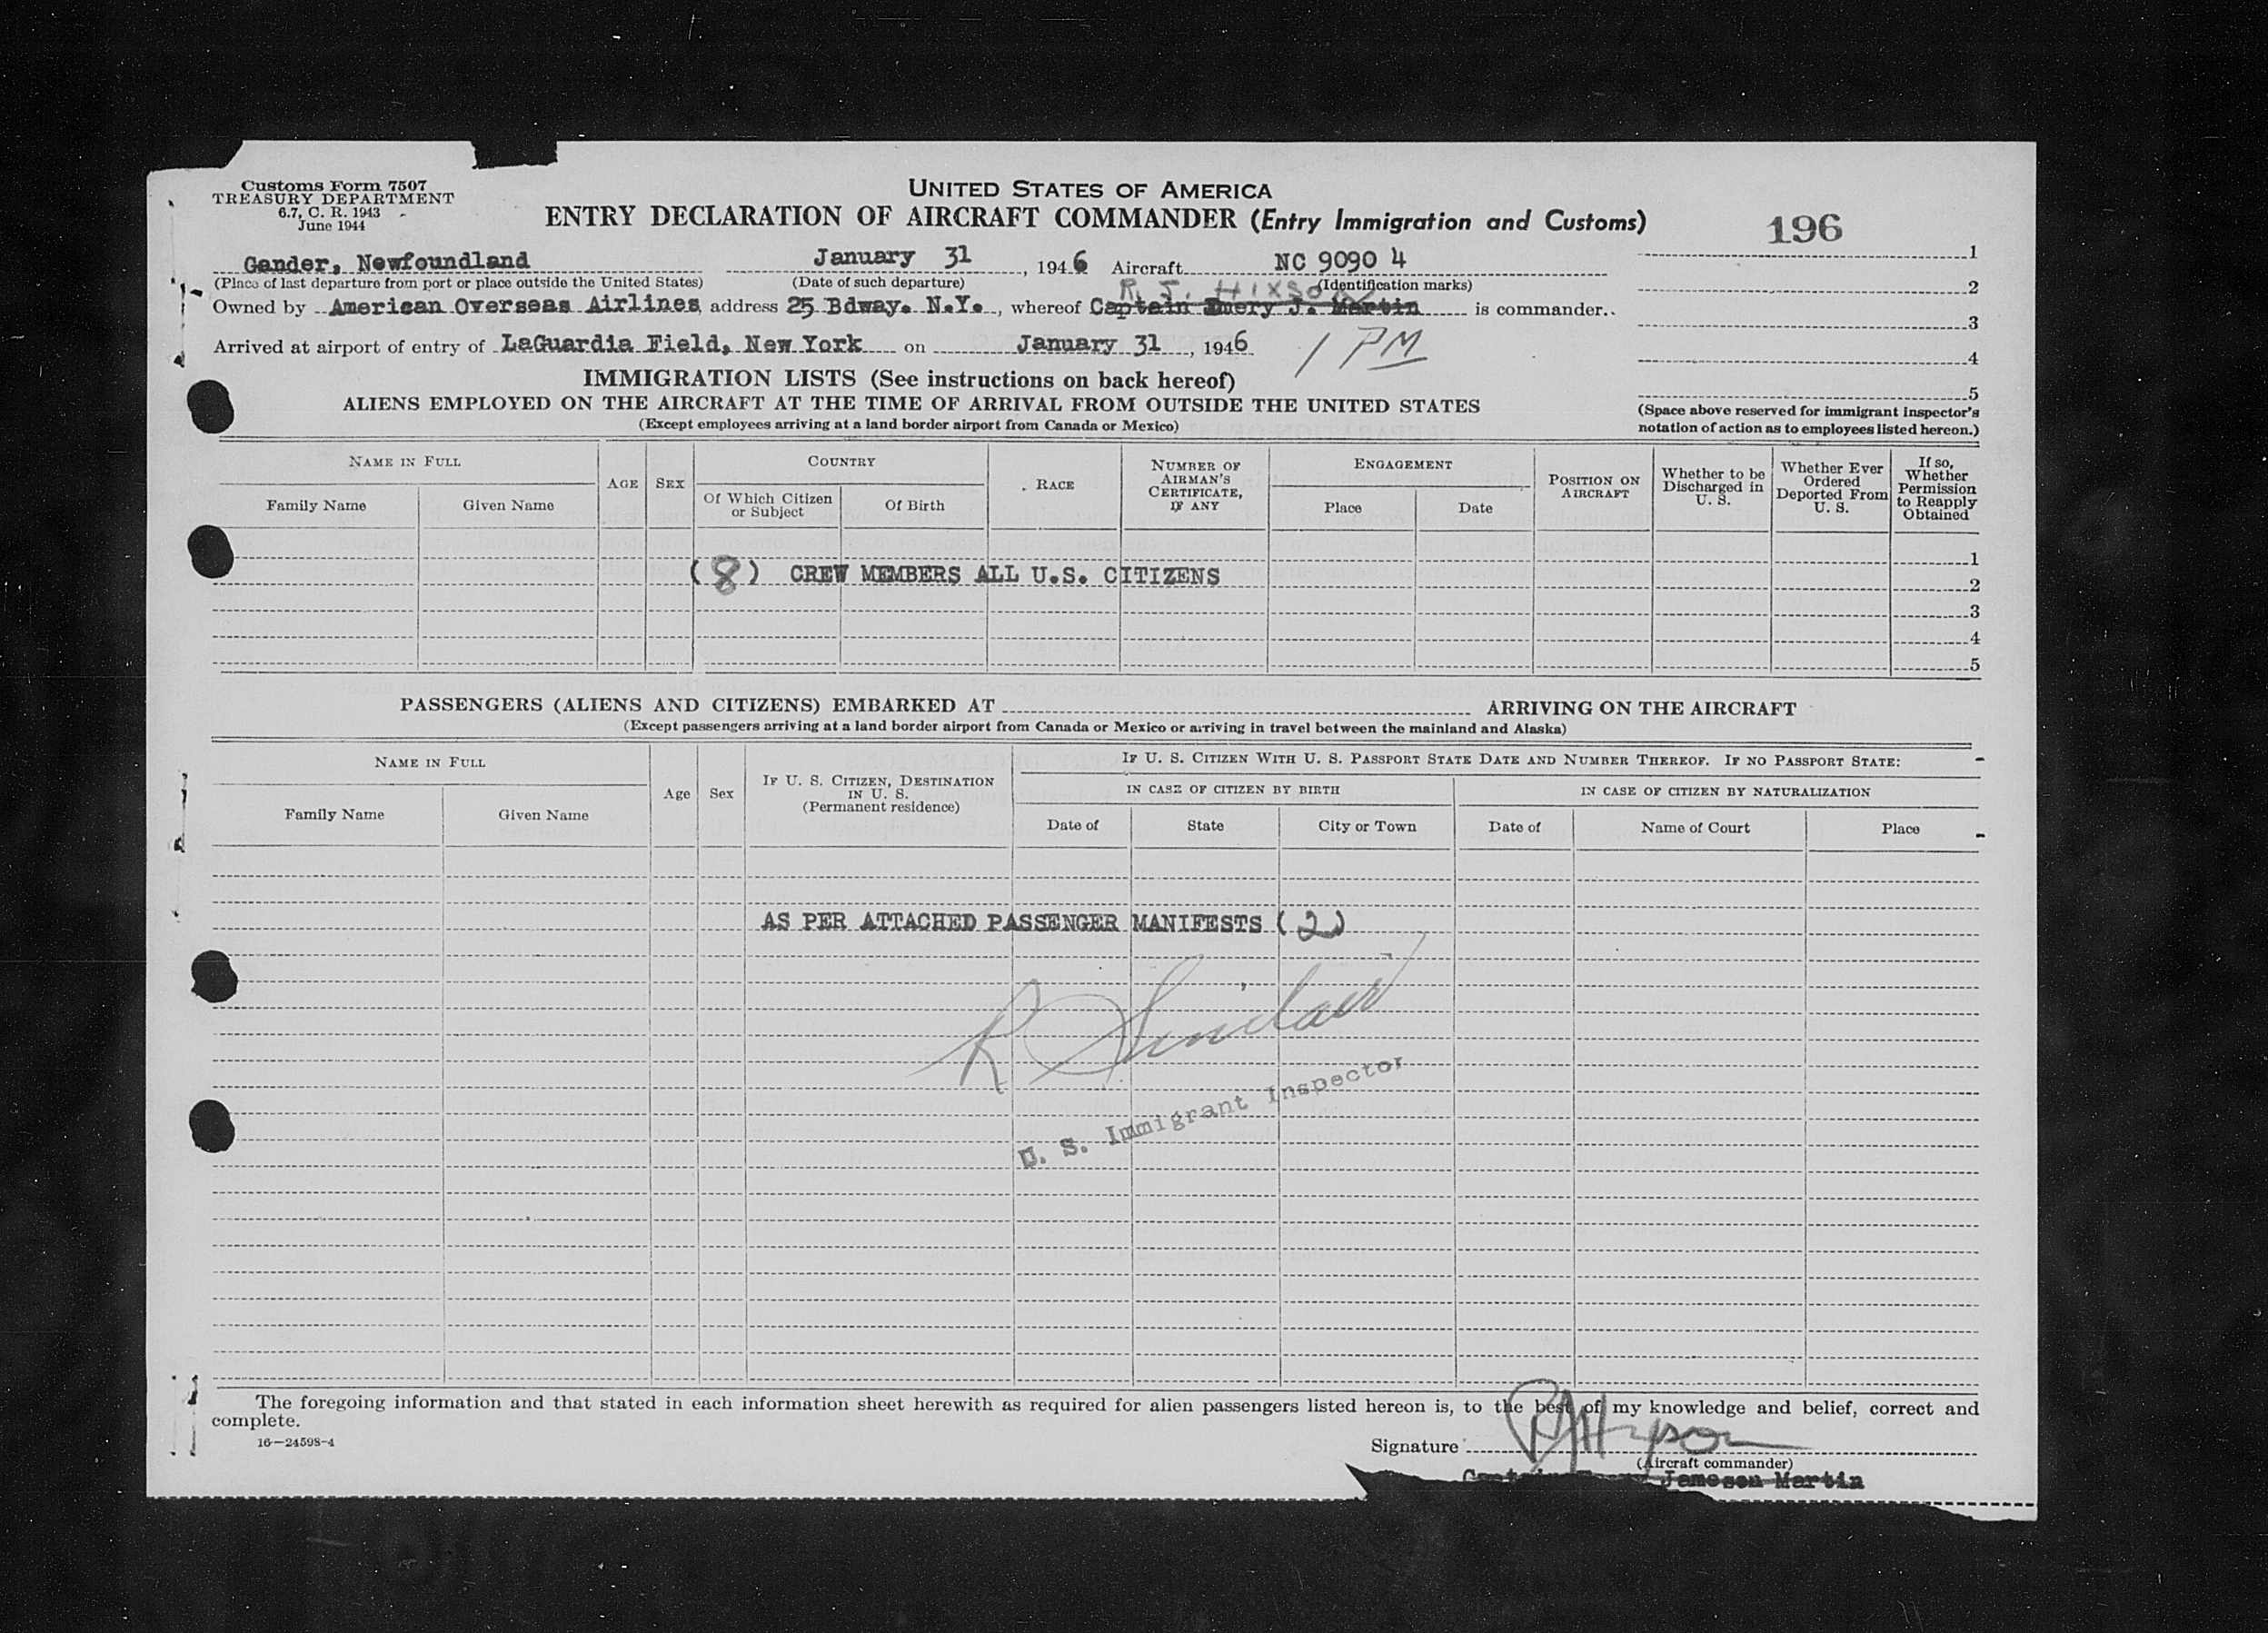 Customs Form 7507
TREASURY DEPARTMENT
6.7, C. R. 1943
June 1944
UNITED STATES OF AMERICA
ENTRY DECLARATION OF AIRCRAFT COMMANDER (Entry Immigration and Customs)
196
Gander, Newfoundland January 31, 1946 Aircraft NC 90904
(Place of last departure from port or place outside the United States) (Date of such departure) (Identification marks)
R. J. HIXSON
Owned by American Overseas Airlines address 25 Bdway. N.Y., whereof Captain Emery J. Martin is commander.
Arrived at airport of entry of LaGuardia Field, New York on January 31, 1946 1 PM
1
2
3
4
5
(Space above reserved for immigrant inspector's
notation of action as to employees listed hereon.)
IMMIGRATION LISTS (See instructions on back hereof)
ALIENS EMPLOYED ON THE AIRCRAFT AT THE TIME OF ARRIVAL FROM OUTSIDE THE UNITED STATES
(Except employees arriving at a land border airport from Canada or Mexico)
NAME IN FULL
Family Name
Given Name
AGE
SEX
COUNTRY
Of Which Citizen
or Subject
Of Birth
RACE
NUMBER OF
AIRMAN'S
CERTIFICATE,
IF ANY
ENGAGEMENT
Place
Date
POSITION ON
AIRCRAFT
Whether to be
Discharged in
U. S.
Whether Ever
Ordered
Deported From
U. S.
If so,
Whether
Permission
to Reapply
Obtained
1
(8) CREW MEMBERS ALL U.S. CITIZENS
2
3
4
5
PASSENGERS (ALIENS AND CITIZENS) EMBARKED AT ARRIVING ON THE AIRCRAFT
(Except passengers arriving at a land border airport from Canada or Mexico or arriving in travel between the mainland and Alaska)
NAME IN FULL
Family Name
Given Name
Age
Sex
IF U. S. CITIZEN, DESTINATION
IN U. S.
(Permanent residence)
IF U. S. CITIZEN WITH U. S. PASSPORT STATE DATE AND NUMBER THEREOF. IF NO PASSPORT STATE:
IN CASE OF CITIZEN BY BIRTH
Date of
State
City or Town
IN CASE OF CITIZEN BY NATURALIZATION
Date of
Name of Court
Place
AS PER ATTACHED PASSENGER MANIFESTS (2)
R Sinclair
U. S. Immigrant Inspector
The foregoing information and that stated in each information sheet herewith as required for alien passengers listed hereon is, to the best of my knowledge and belief, correct and
complete.
16—24598-4
Signature RJHixson
(Aircraft commander)
Captain Jameson Martin